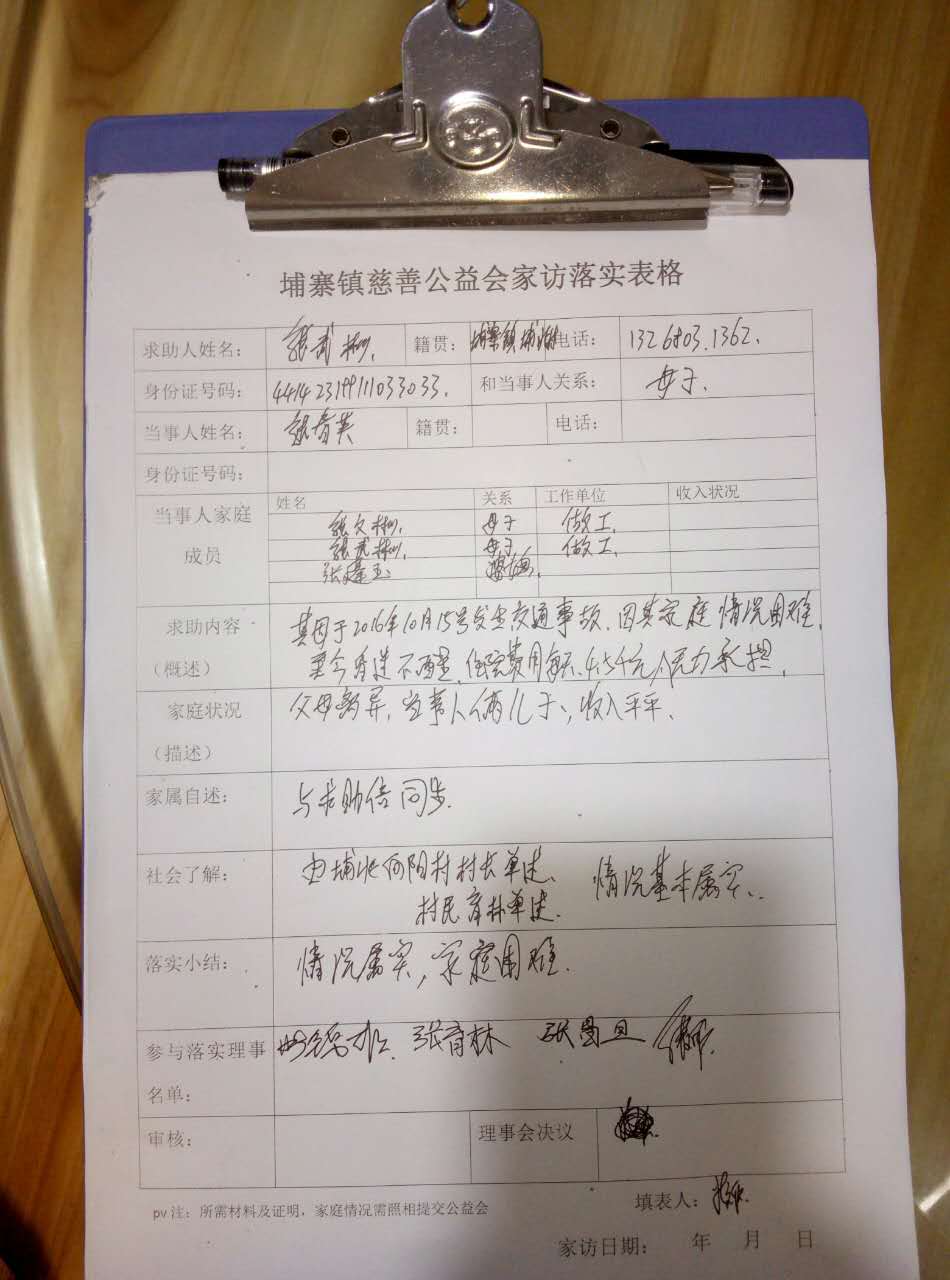 埔寨镇慈善公益会家访落实表格
求助人姓名: 张武彬. 籍贯: 电话:
身份证号码: 和当事人关系: 母子.
当事人姓名: 籍贯: 电话:
身份证号码:
当事人家庭成员 姓名 关系 工作单位 收入状况
张文彬. 母子 做工.
张武彬. 母子. 做工.
张建玉
求助内容 其母于2016年10月15号发生交通事故. 因其家庭情况困难.
(概述) 至今昏迷不醒. 住院费用每天. 4.5千元. 无力承担.
家庭状况 父母离异. 当事人俩儿子. 收入平平.
(描述)
家属自述: 与求助信同步.
社会了解: 村村长单进. 情况基本属实.
村民 单进.
落实小结: 情况属实, 家庭困难.
参与落实理事 张育林 张昌旦
名单:
审核: 理事会决议
pv注: 所需材料及证明, 家庭情况需照相提交公益会 填表人:
家访日期: 年 月 日